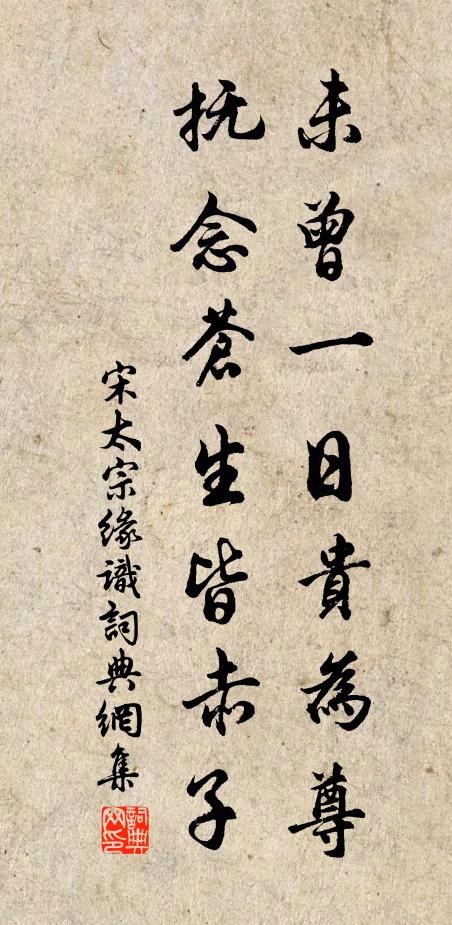 未曾一日貴為尊
抚念蒼生皆赤子
宋太宗緣識詞典網集
詞典網印